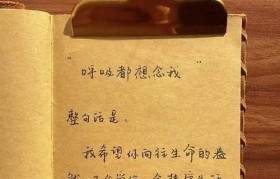 “呼吸都想念我”
整句话是。
我希望你向往生命的盎